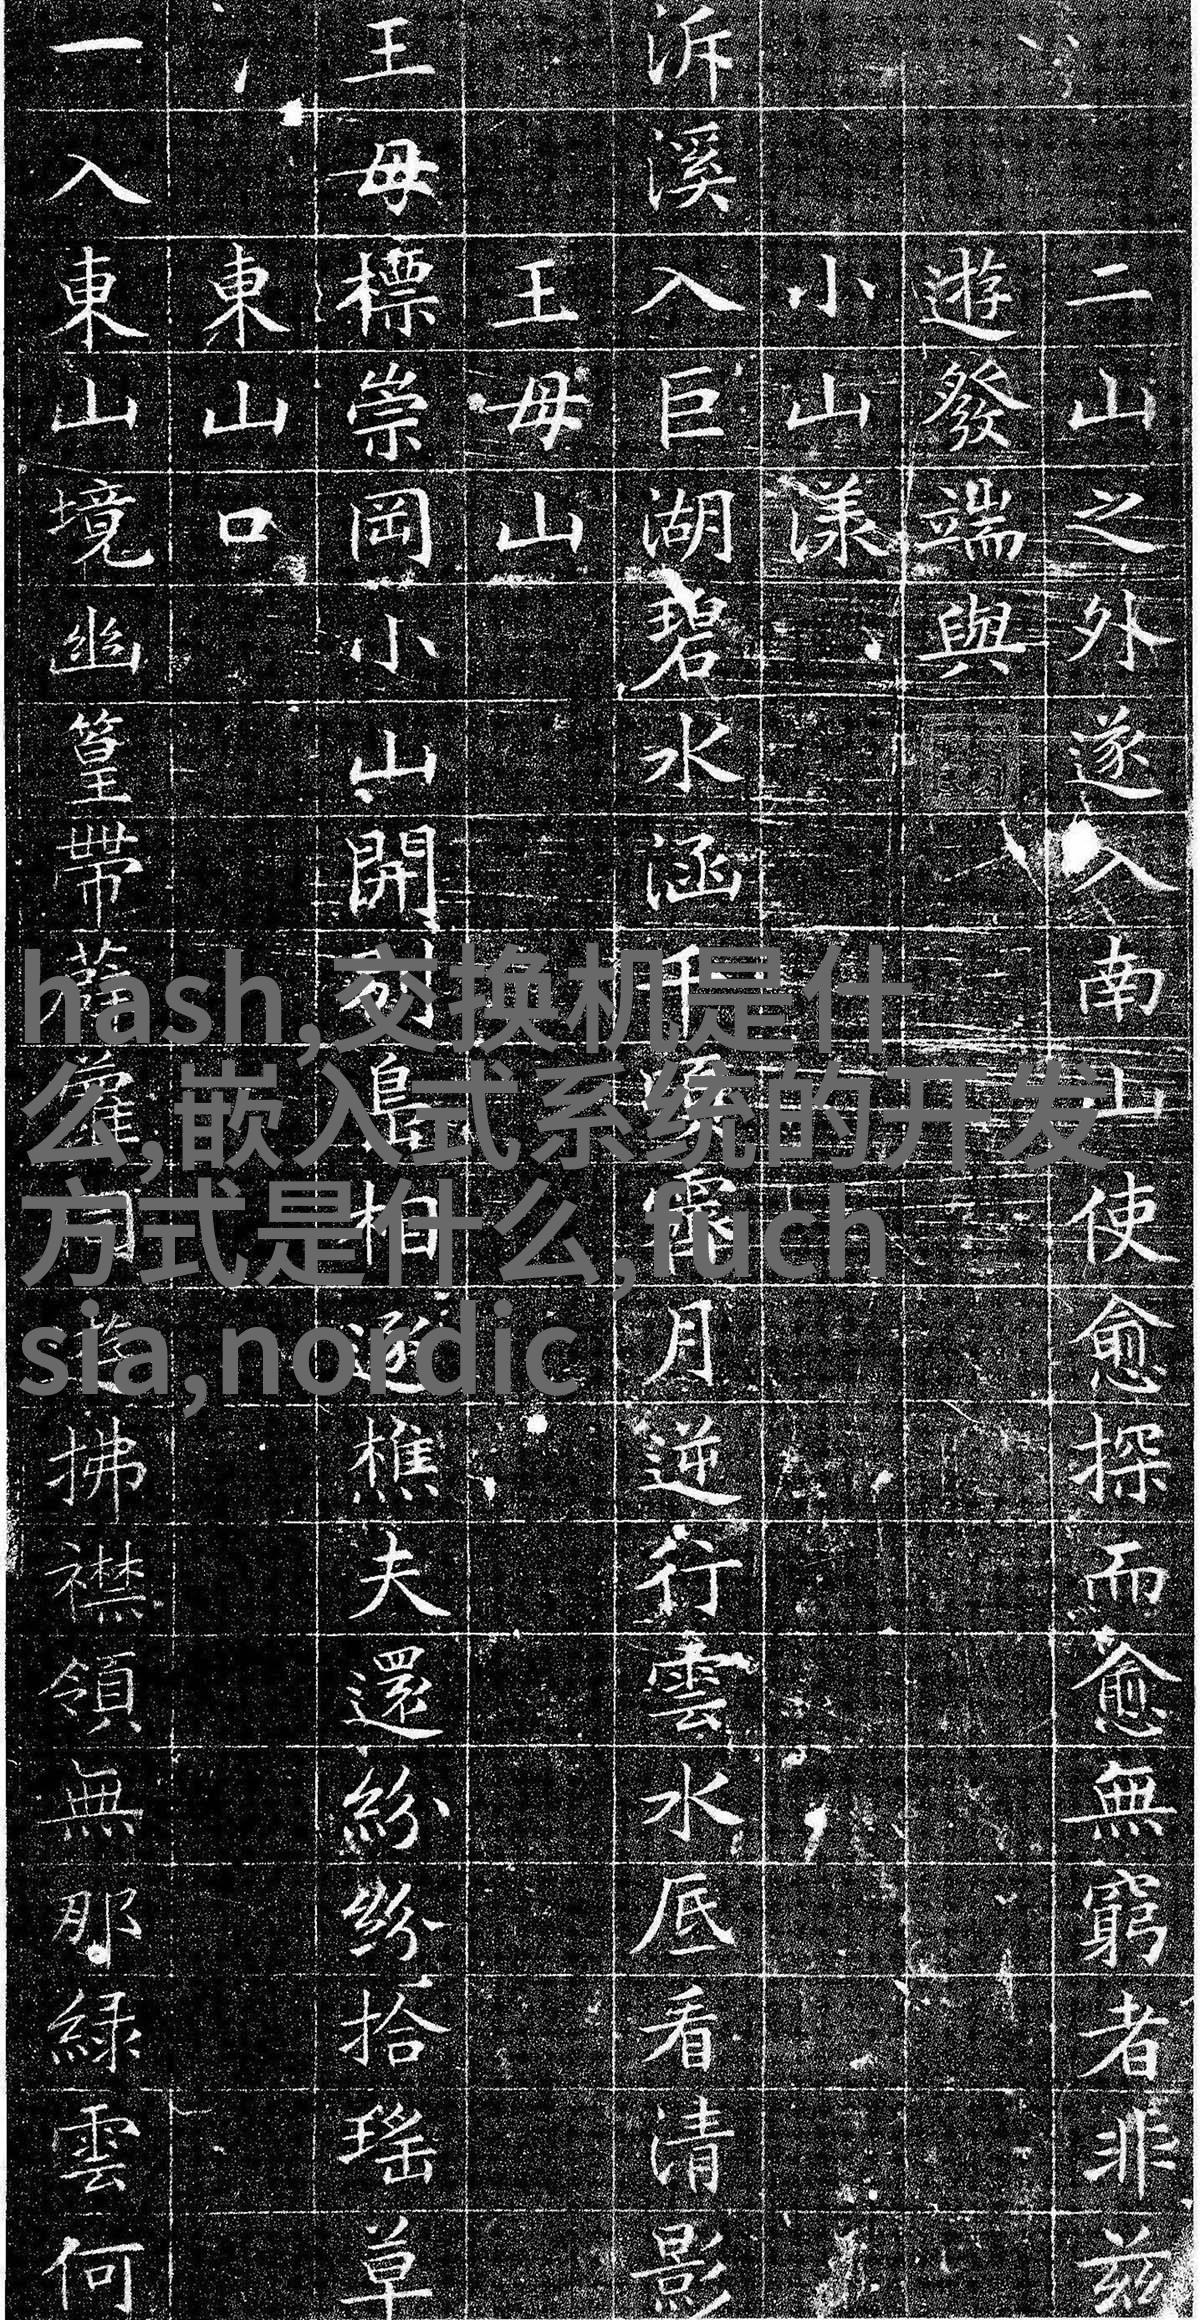 二山之外遂入南山使愈探而愈無窮者非茲
遊發端與
小山漾
泝溪入巨湖碧水涵千頃月逆行雲水底看清影
王母山
王母標崇岡小山開列島相樵夫還紛紛拾瑤草
東山口
一入東山境幽篁帶薜蘿拂襟領無那綠雲何
hash,交换机是什
么,嵌入式系统的开发
方式是什么,fuch
sia,nordic